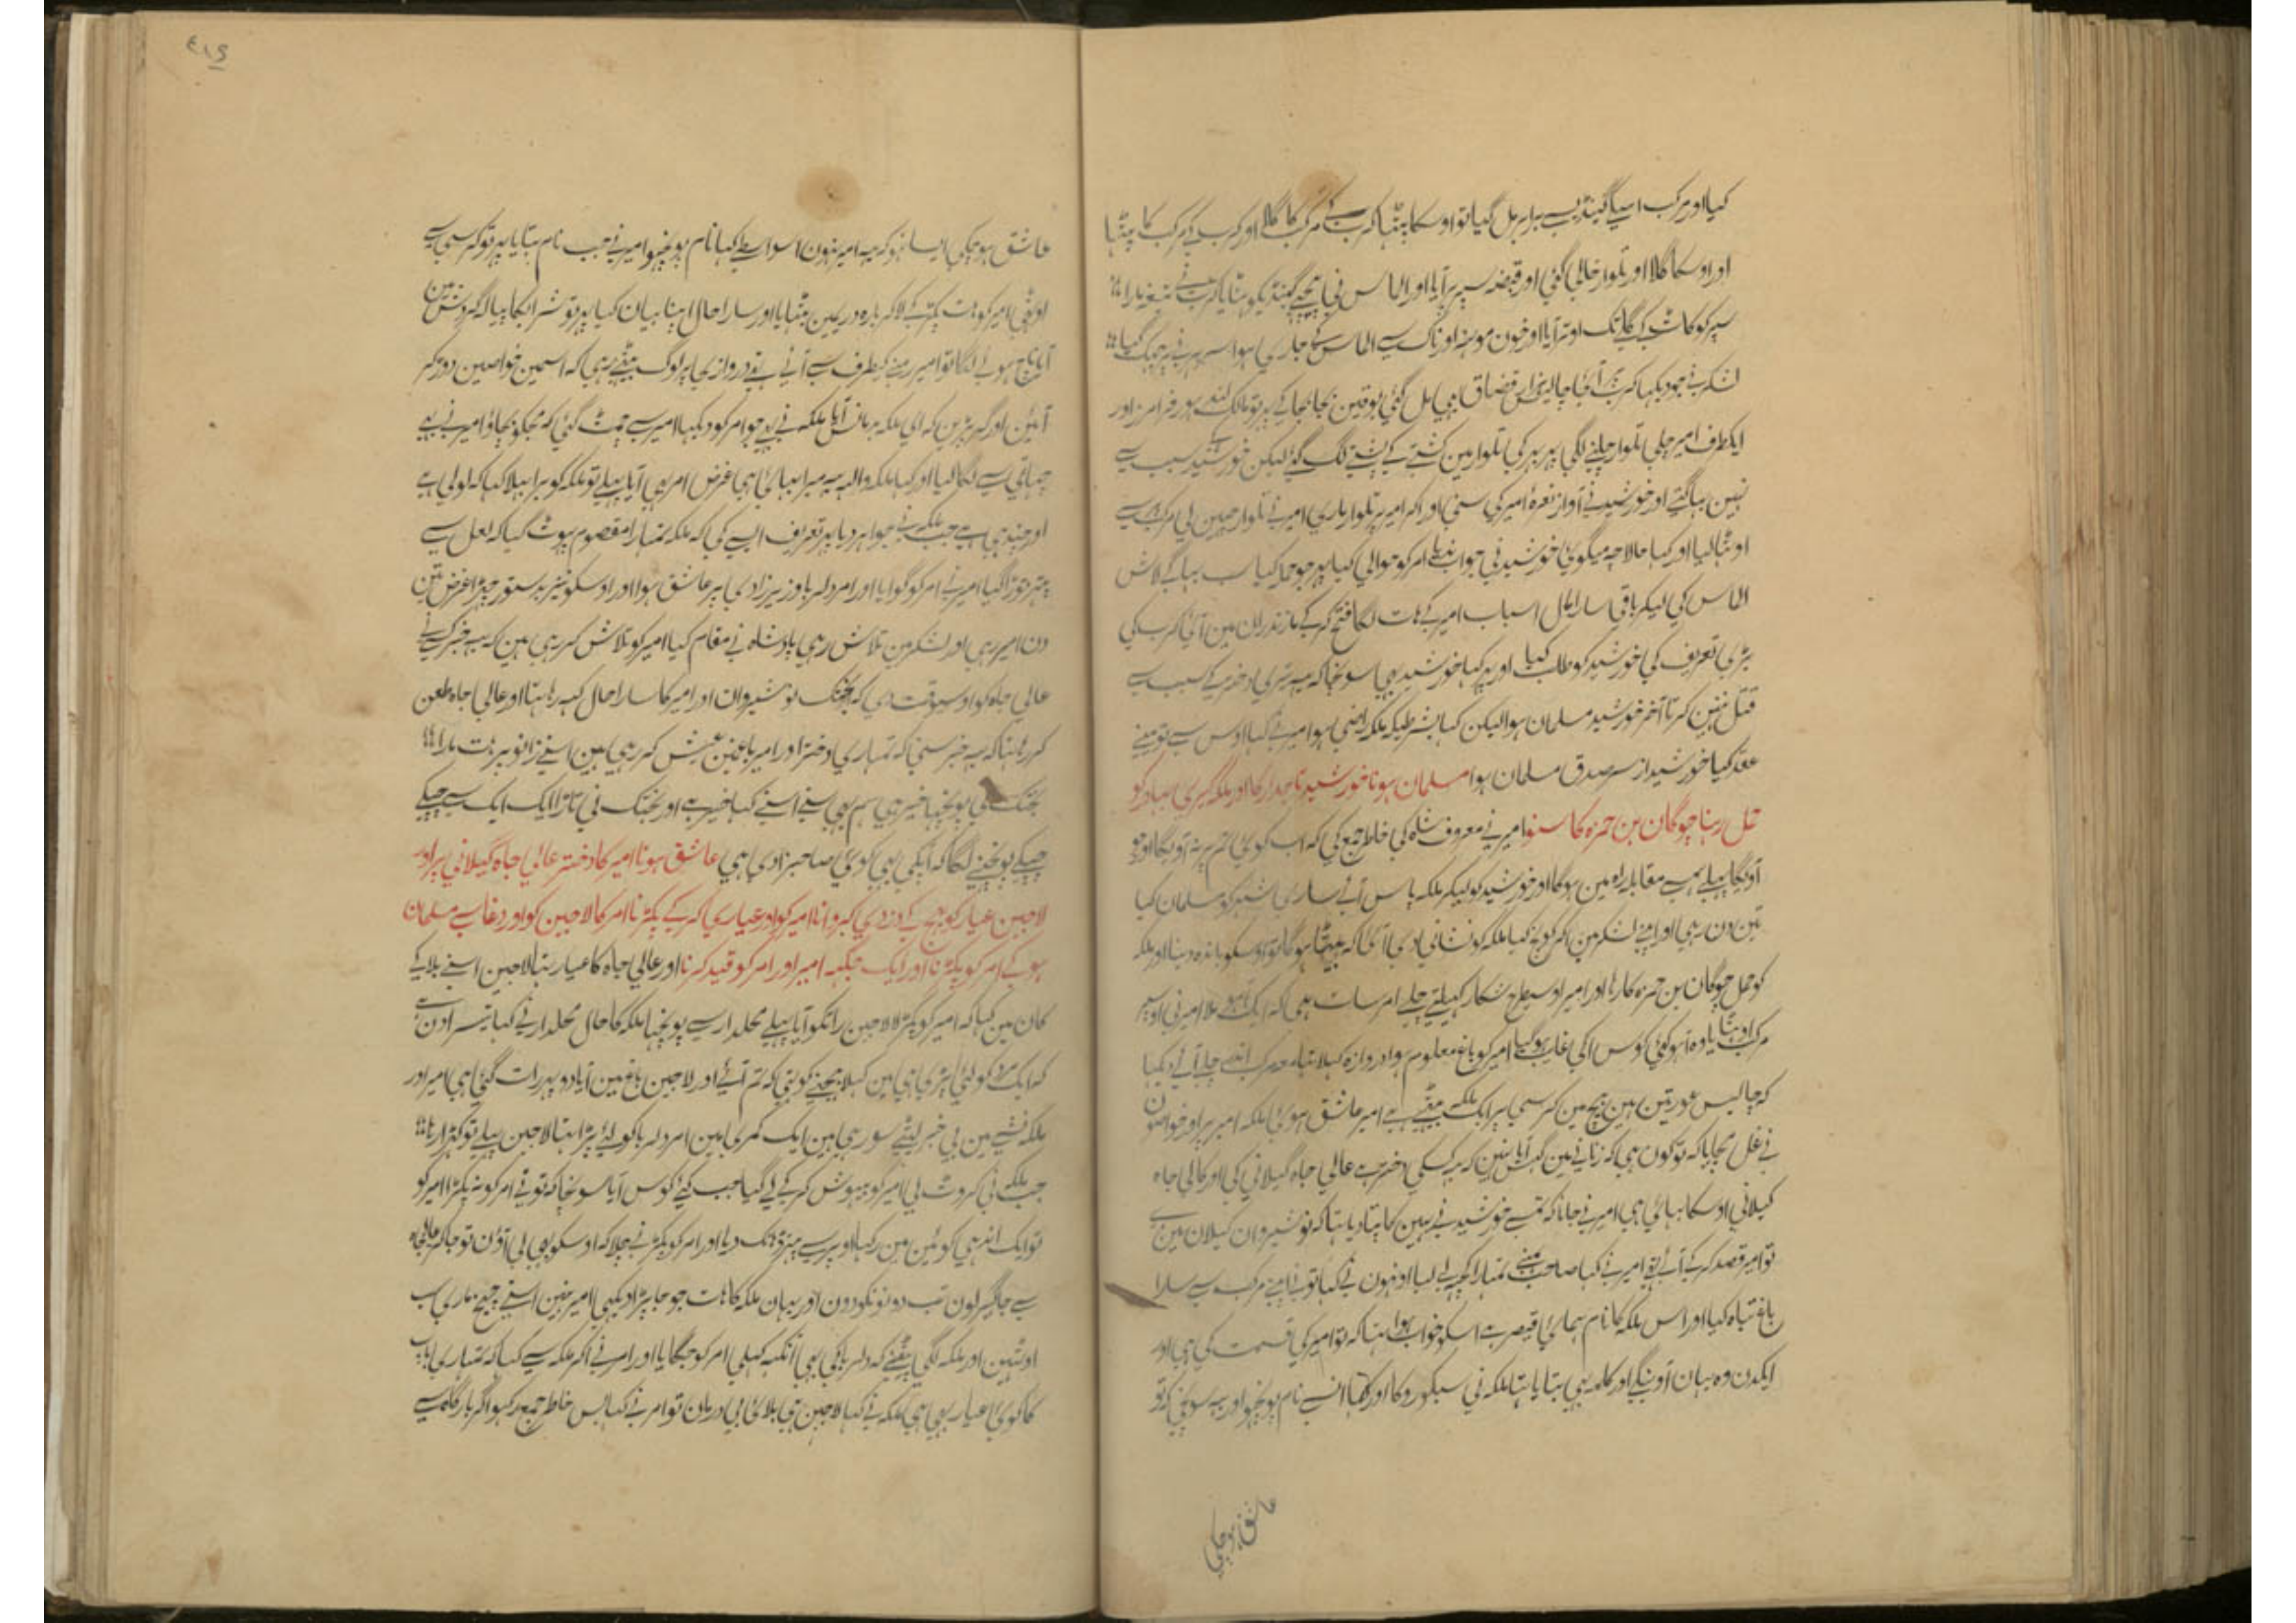 کیا اور مرکب اسپاگینڈیسے برابر مل گیا تو اوسکا پٹھا کرب کے مرکب کا گلا اور کرب کے مرکب کا پٹھا
اور اوسکا گلا اور تلوار خالی گئی اور قبضہ سپر پر آیا اور الماس نی پیچھے گینڈیکو ہٹایا کرب نے تیغہ مارا
سپر کو کاٹ کے گلے تک اوتر آیا اور خون مونہہ اور ناک سے الماس کے جاری ہوا
لشکر نے جو دیکہا کرب آئی چالیس ہزار قضاق بھی مل گئی بوقین بجا بجا کے پھر تو مالک لندہور فرامرز اور
ایکطرف امیر چلی تلوار چلنے لگی پھر پھر کی تلوار مین کشتے کے پشتے لگ گئے لیکن خورشید کے سبب سے
نہین بہاگتے اور خورشید نے آواز نعرہ امیر کی سنی اور آکر امیر پر تلوار ماری امیر نے تلوار چھین لی مرکب سے
اوٹھا لیا اور کہا حالا چہ میگوئی خورشید نی جواب ندیا امر کو حوالی کیا پھر جو حملہ کیا سب بہاگے لاش
الماس کی لیکر باقی سارا مال اسباب امیر کے ہات لگا فتح کر کے مازندران مین آئی کرب کی
بڑی تعریف کی خورشید کو طلب کیا اور پھر کہا خورشید بھی سونچا کہ یہہ تیری دختر کے سبب سے
قتل نہین کرتا آخر خورشید مسلمان ہوا لیکن کہا بشرطیکہ ملکہ راضی ہو امیر نے کہا اوس سے تو مینے
عقد کیا خورشید از سر صدق مسلمان ہوا مسلمان ہونا خورشید تاجدار کا اور ملکہ گیری بہادر کو
حمل رہنا چوگان بن حمزہ کا سنو امیر نے معروف شاہ کی خاطر جمع کی کہ اب کوئی تم پر نہ آویگا اور جو
آویگا پہلے ہم سے مقابلہ راہ مین ہوگا اور خورشید کو لیکر ملکہ پاس آئے ساری شہر کو مسلمان کیا
تین دن رہی اور اپنے لشکر مین آکر کوچ کیا ملکہ کو نشانی دی آئی کہ بیٹا ہوگا تو اوسکو باندہ دینا اور ملکہ
کو حمل چوگان بن حمزہ کا رہا اور امیر اوسیطرح شکار کہیلتے چلے امر سات ہی کہ ایک آہو ملا امیر نی اوسپر
مرکب اوٹھایا وہ آہو کئی کوس آکی غایب ہوگیا امیر کو باغ معلوم ہوا دروازہ کہلا تہا معہ مرکب اندر چلے آئے دیکہا
کہ چالیس عورتین ہین بیچ مین کرسی پر ایک ملکہ بیٹھے ہے امیر عاشق ہوئی ملکہ امیر پر اور خواصون
نے غل مچایا کہ تو کون ہی کہ زنانے مین گہس آیا نہین کہ یہہ کسکی دختر ہے عالی جاہ گیلانی کی اور کالی جاہ
گیلانی اوسکا بہائی ہی امیر نے جانا کہ تمسے خورشید نے یہین کا پتا دیا تہا کہ نوشیروان گیلان مین ہے
تو امیر قصد کر کے آئے تھے امیر نے کہا صاحب مینے تمہارا کچہہ لے لیا اونہون نے کہا تو نے اپنے مرکب سے سارا
باغ تباہ کیا اور اس ملکہ کا نام ہمای قیصر ہے اسکو خواب ہوا تہا کہ تو امیر کی قسمت کی ہی اور
ایکدن وہ یہان آوینگے اور کلمہ بھی بتایا تہا ملکہ نی سبکو روکا اور کہا اسنے نام پونچہو اور یہہ سونچی کہ تو
عاشق ہو چکی
٤١٩
عاشق ہو چکی ایسا نہو کہ یہہ امیر نہون اسواسطے کہا نام پونچہو امیر نے جب نام بتایا پھر تو کرسی سے
اوٹھی امیر کو ہات پکڑ کے لا کر بارہ دریمین بٹہایا اور سارا حال اپنا بیان کیا پھر تو شراب کا پیالہ گردش مین
آیا ناچ ہونے لگا تو امیر رمنے کیطرف سے آئے تھے دروازے پر لوگ بیٹھے رہی کہ اسمین خواصین دوڑ کر
آئین اور گر پڑین کہ ای ملکہ مانس آیا ملکہ نے بھی جو امر کو دیکہا امیر سے چمٹ گئی کہ مجکو بچاؤ امیر نے بھی
چہاتی سے لگا لیا اور کہا ملکہ واللہ یہہ میرا بہائی ہی غرض امر بھی آیا پہلے تو ملکہ کو برا بہلا کہا کہ لولی ہے
اور چنین ہے جب ملکہ نے جواہر دیا پھر تعریف ایسے کی کہ ملکہ تمہارا مقصوم پہوٹ گیا کہ لعل سے
پتہر توڑا گیا امیر نے امر کو گوایا اور امر دلربا وزیر زادی پر عاشق ہوا اور اوسکو نیز بدستور چہیڑا غرض تین
دن امیر رہی اور لشکر مین تلاش رہی بادشاہ نے مقام کیا امیر کو تلاش کر رہی ہین کہ یہہ خبر کسی نے
عالی جاہ کو اوسیوقت دی کہ بختک نوشیروان اور امیر کا سارا حال کہہ رہا تہا اور عالی جاہ طعن
کر رہا تہا کہ یہہ خبر سنی کہ تمہاری دختر اور امیر باغمین عیش کر رہی ہین اسنے زانو پر ہات مارا
بختک نی پونچہا خیر ہی ہم بھی سنے اسنے کہا خیر ہے اور بختک نی تاڑا ایک ایک سے چپکے
چپکے پونچہنے لگا کہ انکی بھی کوئی صاحبزادی ہی عاشق ہونا امیر کا دختر عالی جاہ گیلانی پر اور
لاجین عیار کو بھیج کے دزدی کروانا امیر کو اور عیاری کر کے پکڑنا امر کا لاجین کو اور دغا سے مسلمان
ہو کے امر کو پکڑنا اور ایک جگہہ امیر اور امر کو قید کرنا اور عالی جاہ کا عیار تہا لاجین اسنے بلا کے
کان مین کہا کہ امیر کو پکڑ لا لاجین راتکو آیا پہلے محلدار سے پونچہا ملکہ کا حال محلدار نے کہا تیسرا دن ہے
کہ ایک مرد کو لئی پڑی ہی مین کہلا بھیجنے کو تھی کہ تم آئے اور لاجین باغ مین آیا دو پہر رات گئی ہی امیر اور
ملکہ نشے مین بی خبر لپٹے سو رہی ہین ایک کمری مین امر دلربا کو لئے پڑا تہا لاجین پہلے تو کہڑا رہا
جب ملکہ نی کروٹ لی امیر کو بیہوش کر کے لے گیا جب کئی کوس آیا سونچا کہ تو نے امر کو نہ پکڑا امیر کو
تو ایک اندہی کوئین مین رکہا اوپر سے پتہر ڈہانک دیا اور امر کو پکڑنے چلا کہ اوسکو بھی لی آؤن تو جا کر عالیجاہ
سے جاگیر لون تب دونونکو دون اور یہان ملکہ کا ہات جو جا پڑا دیکہے امیر نہین اسنے چیخ ماری سب
اوٹھین اور ملکہ لگی پیٹنے کہ دلربا کی بھی آنکہہ کہلی امر کو جگایا اور امر نے آکر ملکہ سے کہا کہ تمہاری باپ
کا کوئی عیار بھی ہی ملکہ نے کہا لاجین ہی بلائی بی درمان تو امر نے کہا بس خاطر جمع رکہو اگر